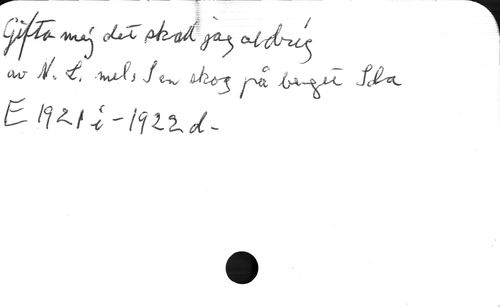 Gifta mej det skall jag aldrig
av N. L. mel. I en skog på berget Ida
E 1921 i - 1922 d -